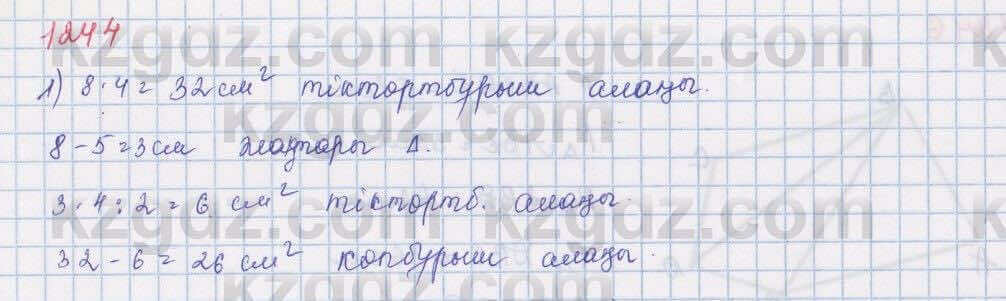 1244
1) 8·4=32см² тіктөртбұрыш алаңы.
8-5=3см жақтары Δ.
3·4:2=6 см² тіктөртб. алаңы.
32-6=26см² көпбұрыш алаңы.
kzgdz.com kzgdz.com
kzgdz.com
kzgdz.com kzgdz.com
kzgdz.com
kzgdz.com kzgdz.com